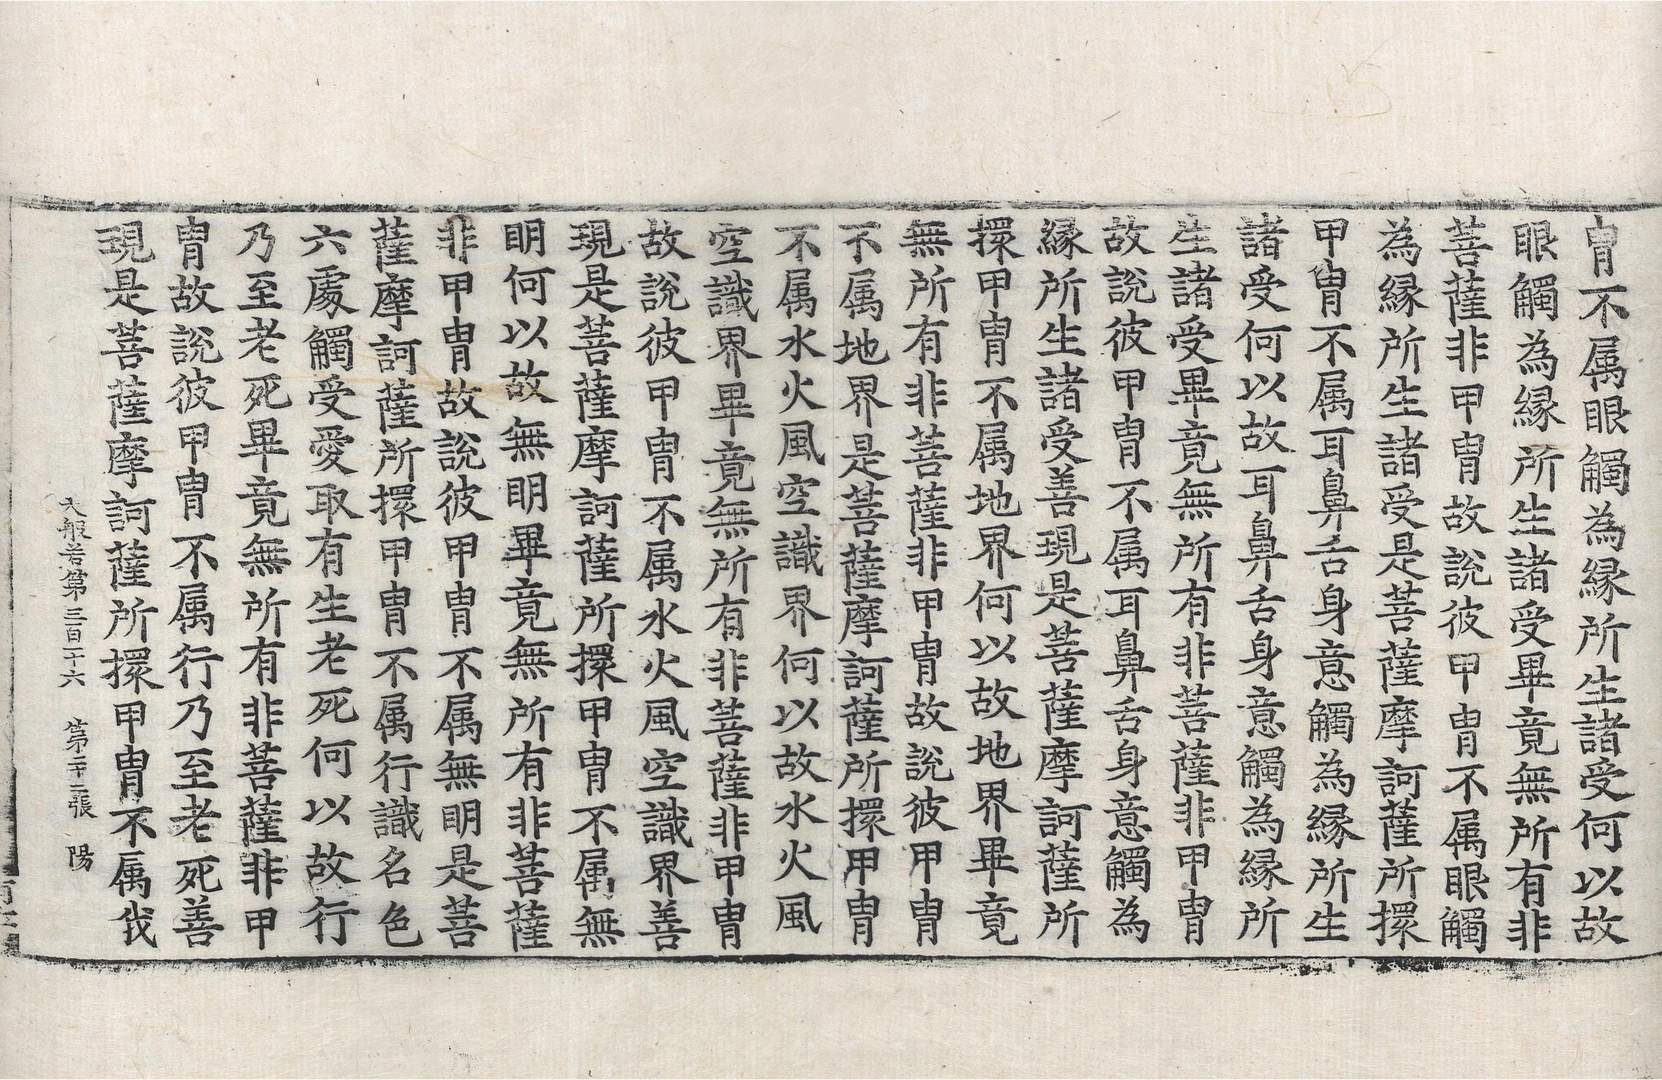 胄不属眼觸為縁所生諸受何以故
眼觸為縁所生諸受畢竟無所有非
菩薩非甲胄故說彼甲胄不属眼觸
為縁所生諸受是菩薩摩訶薩所擐
甲胄不属耳鼻舌身意觸為縁所生
諸受何以故耳鼻舌身意觸為縁所
生諸受畢竟無所有非菩薩非甲胄
故說彼甲胄不属耳鼻舌身意觸為
縁所生諸受善現是菩薩摩訶薩所
擐甲胄不属地界何以故地界畢竟
無所有非菩薩非甲胄故說彼甲胄
不属地界是菩薩摩訶薩所擐甲胄
不属水火風空識界何以故水火風
空識界畢竟無所有非菩薩非甲胄
故說彼甲胄不属水火風空識界善
現是菩薩摩訶薩所擐甲胄不属無
明何以故無明畢竟無所有非菩薩
非甲胄故說彼甲胄不属無明是菩
薩摩訶薩所擐甲胄不属行識名色
六處觸受愛取有生老死何以故行
乃至老死畢竟無所有非菩薩非甲
胄故說彼甲胄不属行乃至老死善
現是菩薩摩訶薩所擐甲胄不属我
大般若第三百二十六 第二十二張 陽